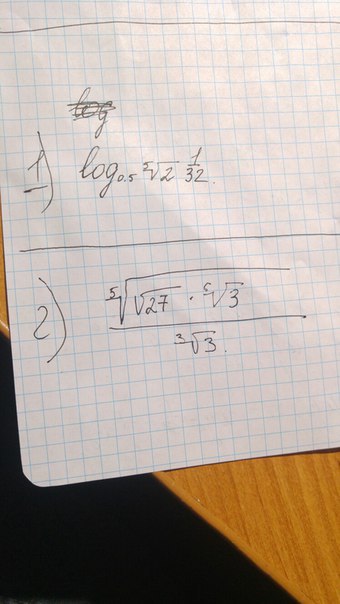 log
1) log₀.₅ ⁵√2 1/32.
2) ⁵√(√27 · ⁶√3) / ³√3.